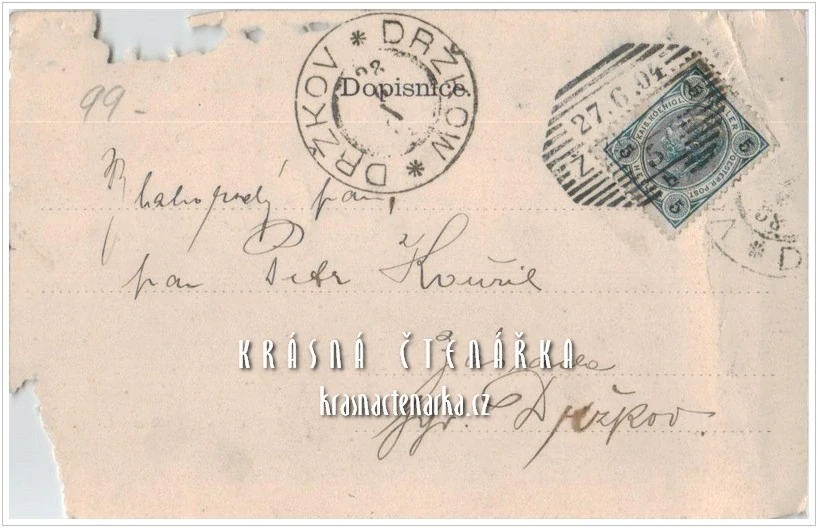 DRŽKOV * DRŽKOW *
Dopisnice.
27.6.04
KAIS. KOENIGL. OESTERR. POST
5 5 5 5
99-
Blahorodý pán,
pan Petr Kouřil
KRÁSNÁ ČTENÁŘKA
krasnactenarka.cz
Držkov.